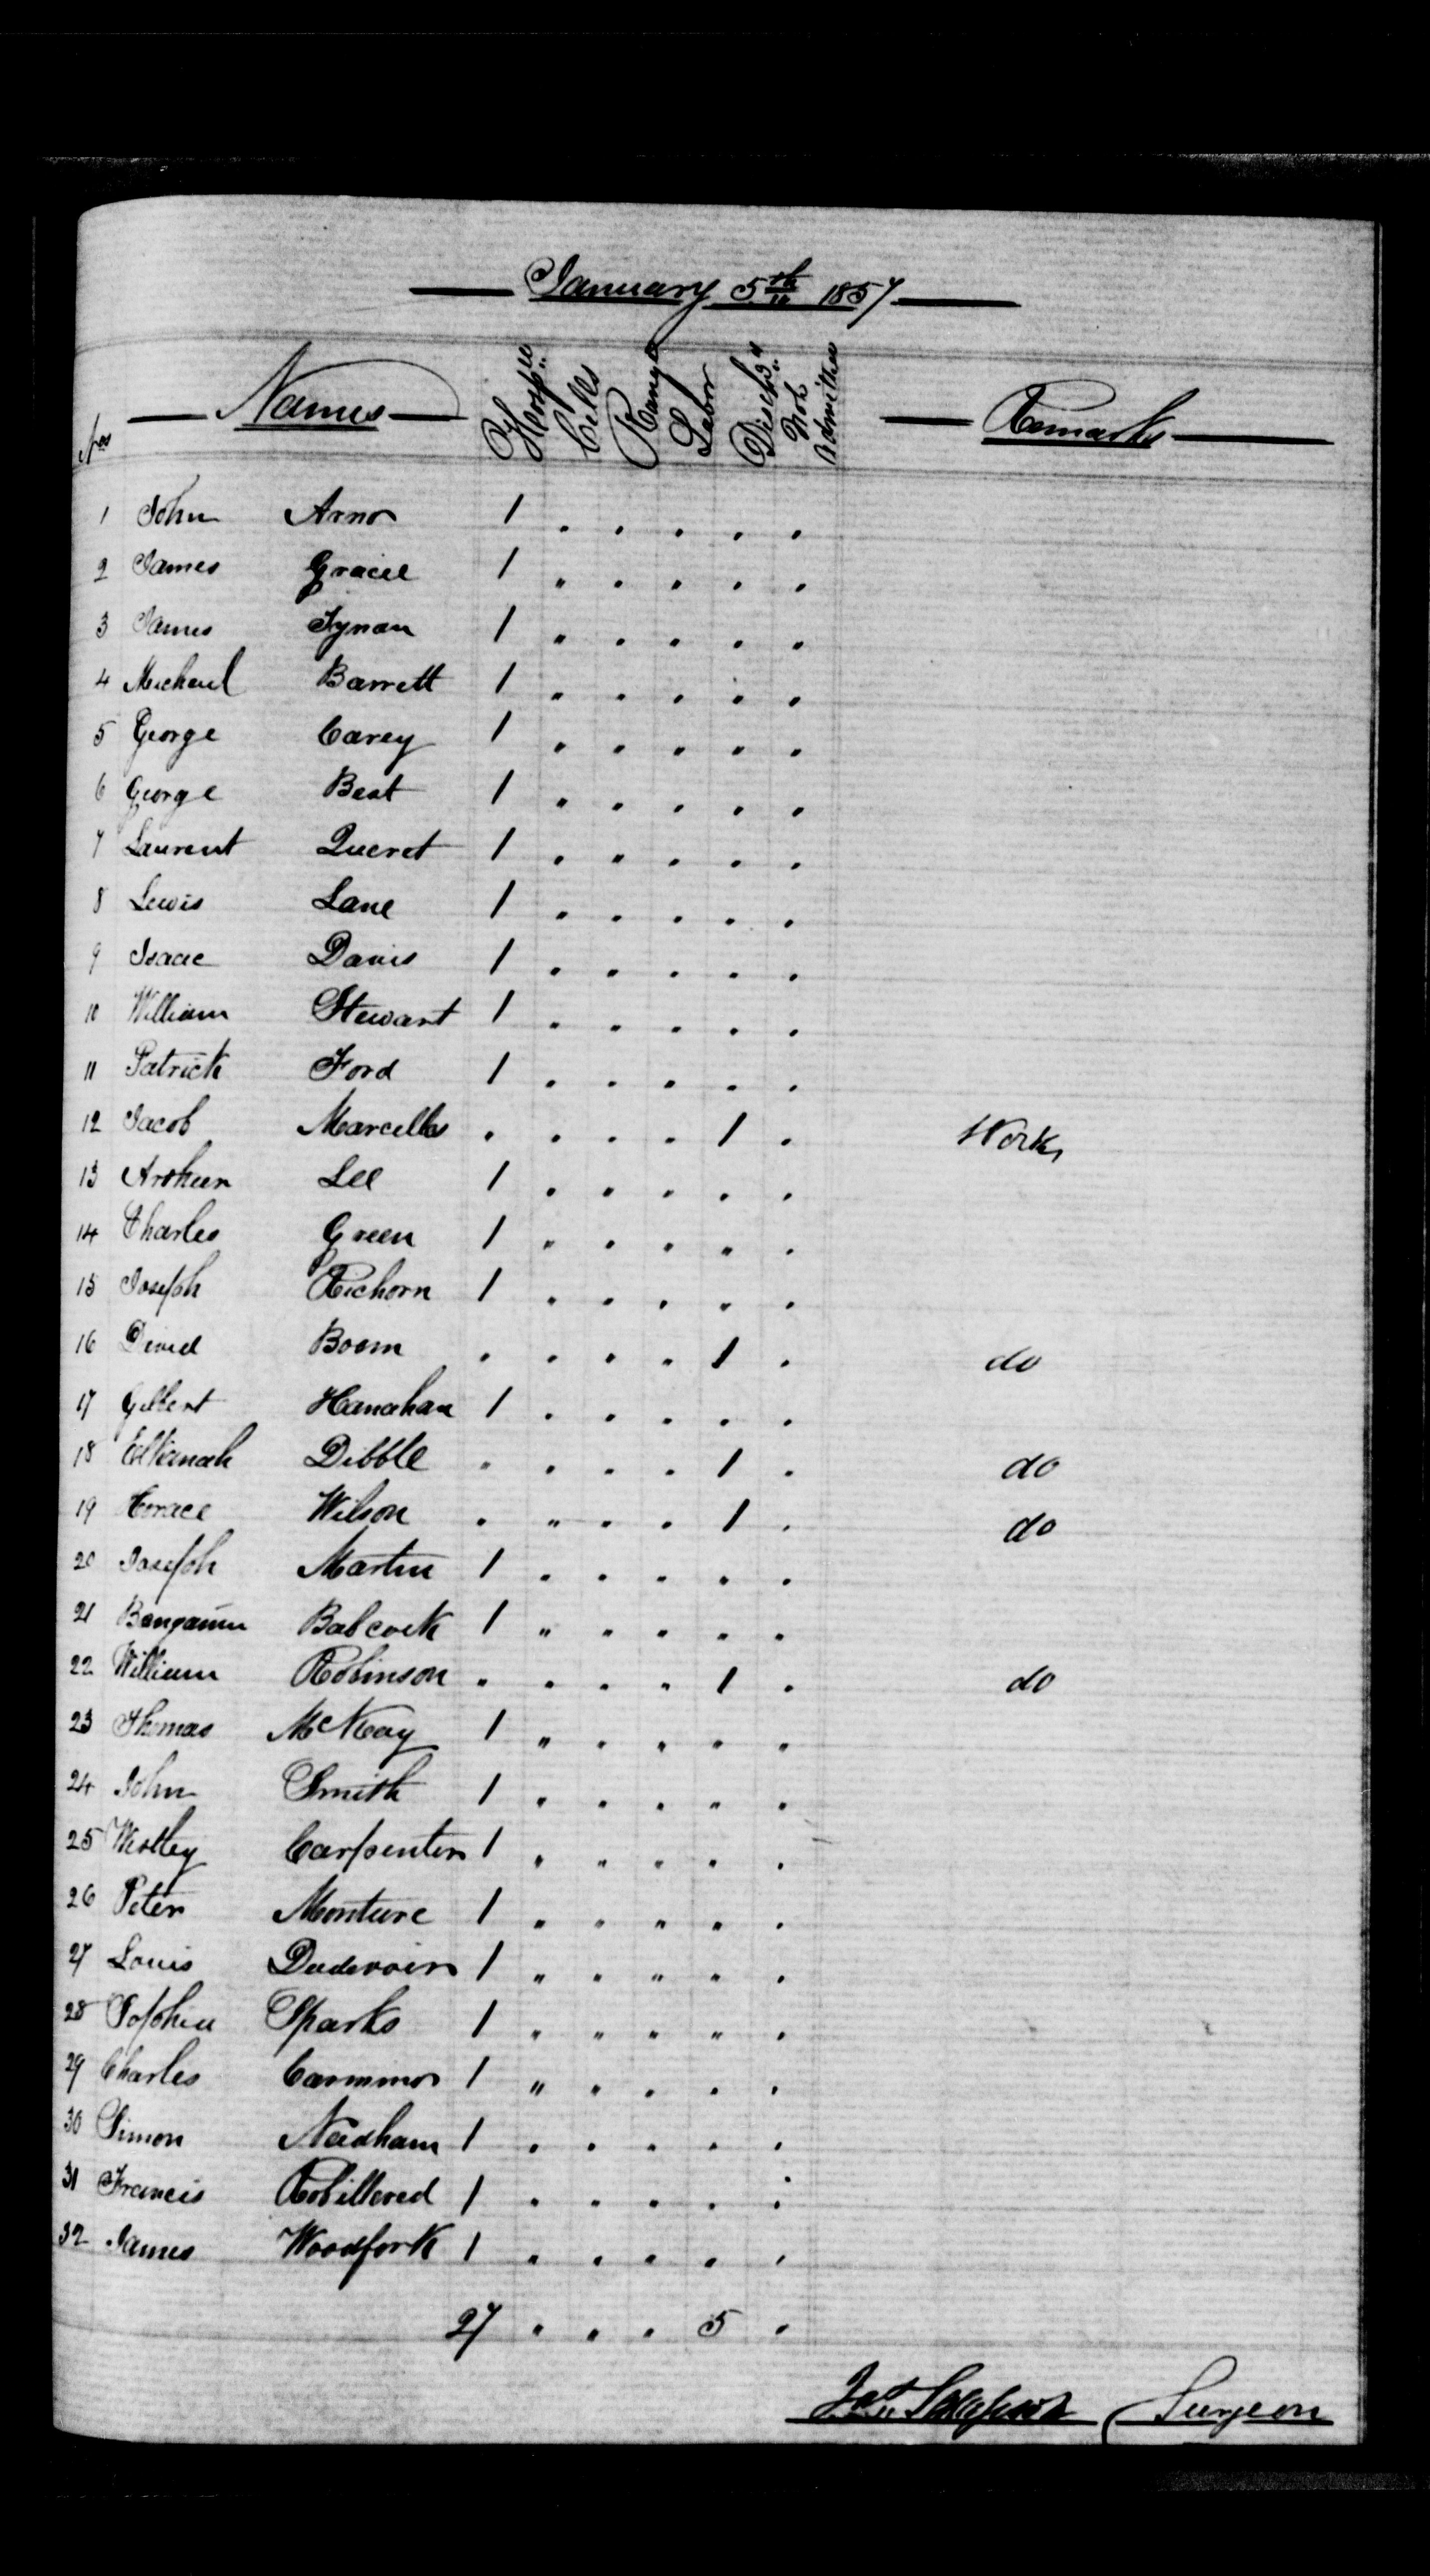 January 5th 1857
Nos Names Hospl Cells Range Labor Dischd Not Admitted Remarks
1 John Arno 1 " " " " "
2 James Gracie 1 " " " " "
3 James Tynan 1 " " " " "
4 Michael Barrett 1 " " " " "
5 George Carey 1 " " " " "
6 George Best 1 " " " " "
7 Laurent Queret 1 " " " " "
8 Lewis Lane 1 " " " " "
9 Isaac Davis 1 " " " " "
10 William Stewart 1 " " " " "
11 Patrick Ford 1 " " " " "
12 Jacob Marcellas " " " " 1 " Work
13 Arthur Lee 1 " " " " "
14 Charles Green 1 " " " " "
15 Joseph Richorn 1 " " " " "
16 David Boem " " " " 1 " do
17 Gilbert Hanahan 1 " " " " "
18 Elkanah Dibble " " " " 1 " do
19 Horace Wilson " " " " 1 " do
20 Joseph Martin 1 " " " " "
21 Bengamin Babcock 1 " " " " "
22 William Robinson " " " " 1 " do
23 Thomas McKay 1 " " " " "
24 John Smith 1 " " " " "
25 Westley Carpenter 1 " " " " "
26 Peter Monture 1 " " " " "
27 Louis Dudevoir 1 " " " " "
28 Sophia Sparks 1 " " " " "
29 Charles Cammo 1 " " " " "
30 Simon Needham 1 " " " " "
31 Francis Robillered 1 " " " " "
32 James Woodfork 1 " " " " "
27 " " " 5 "
Jas Sampson Surgeon